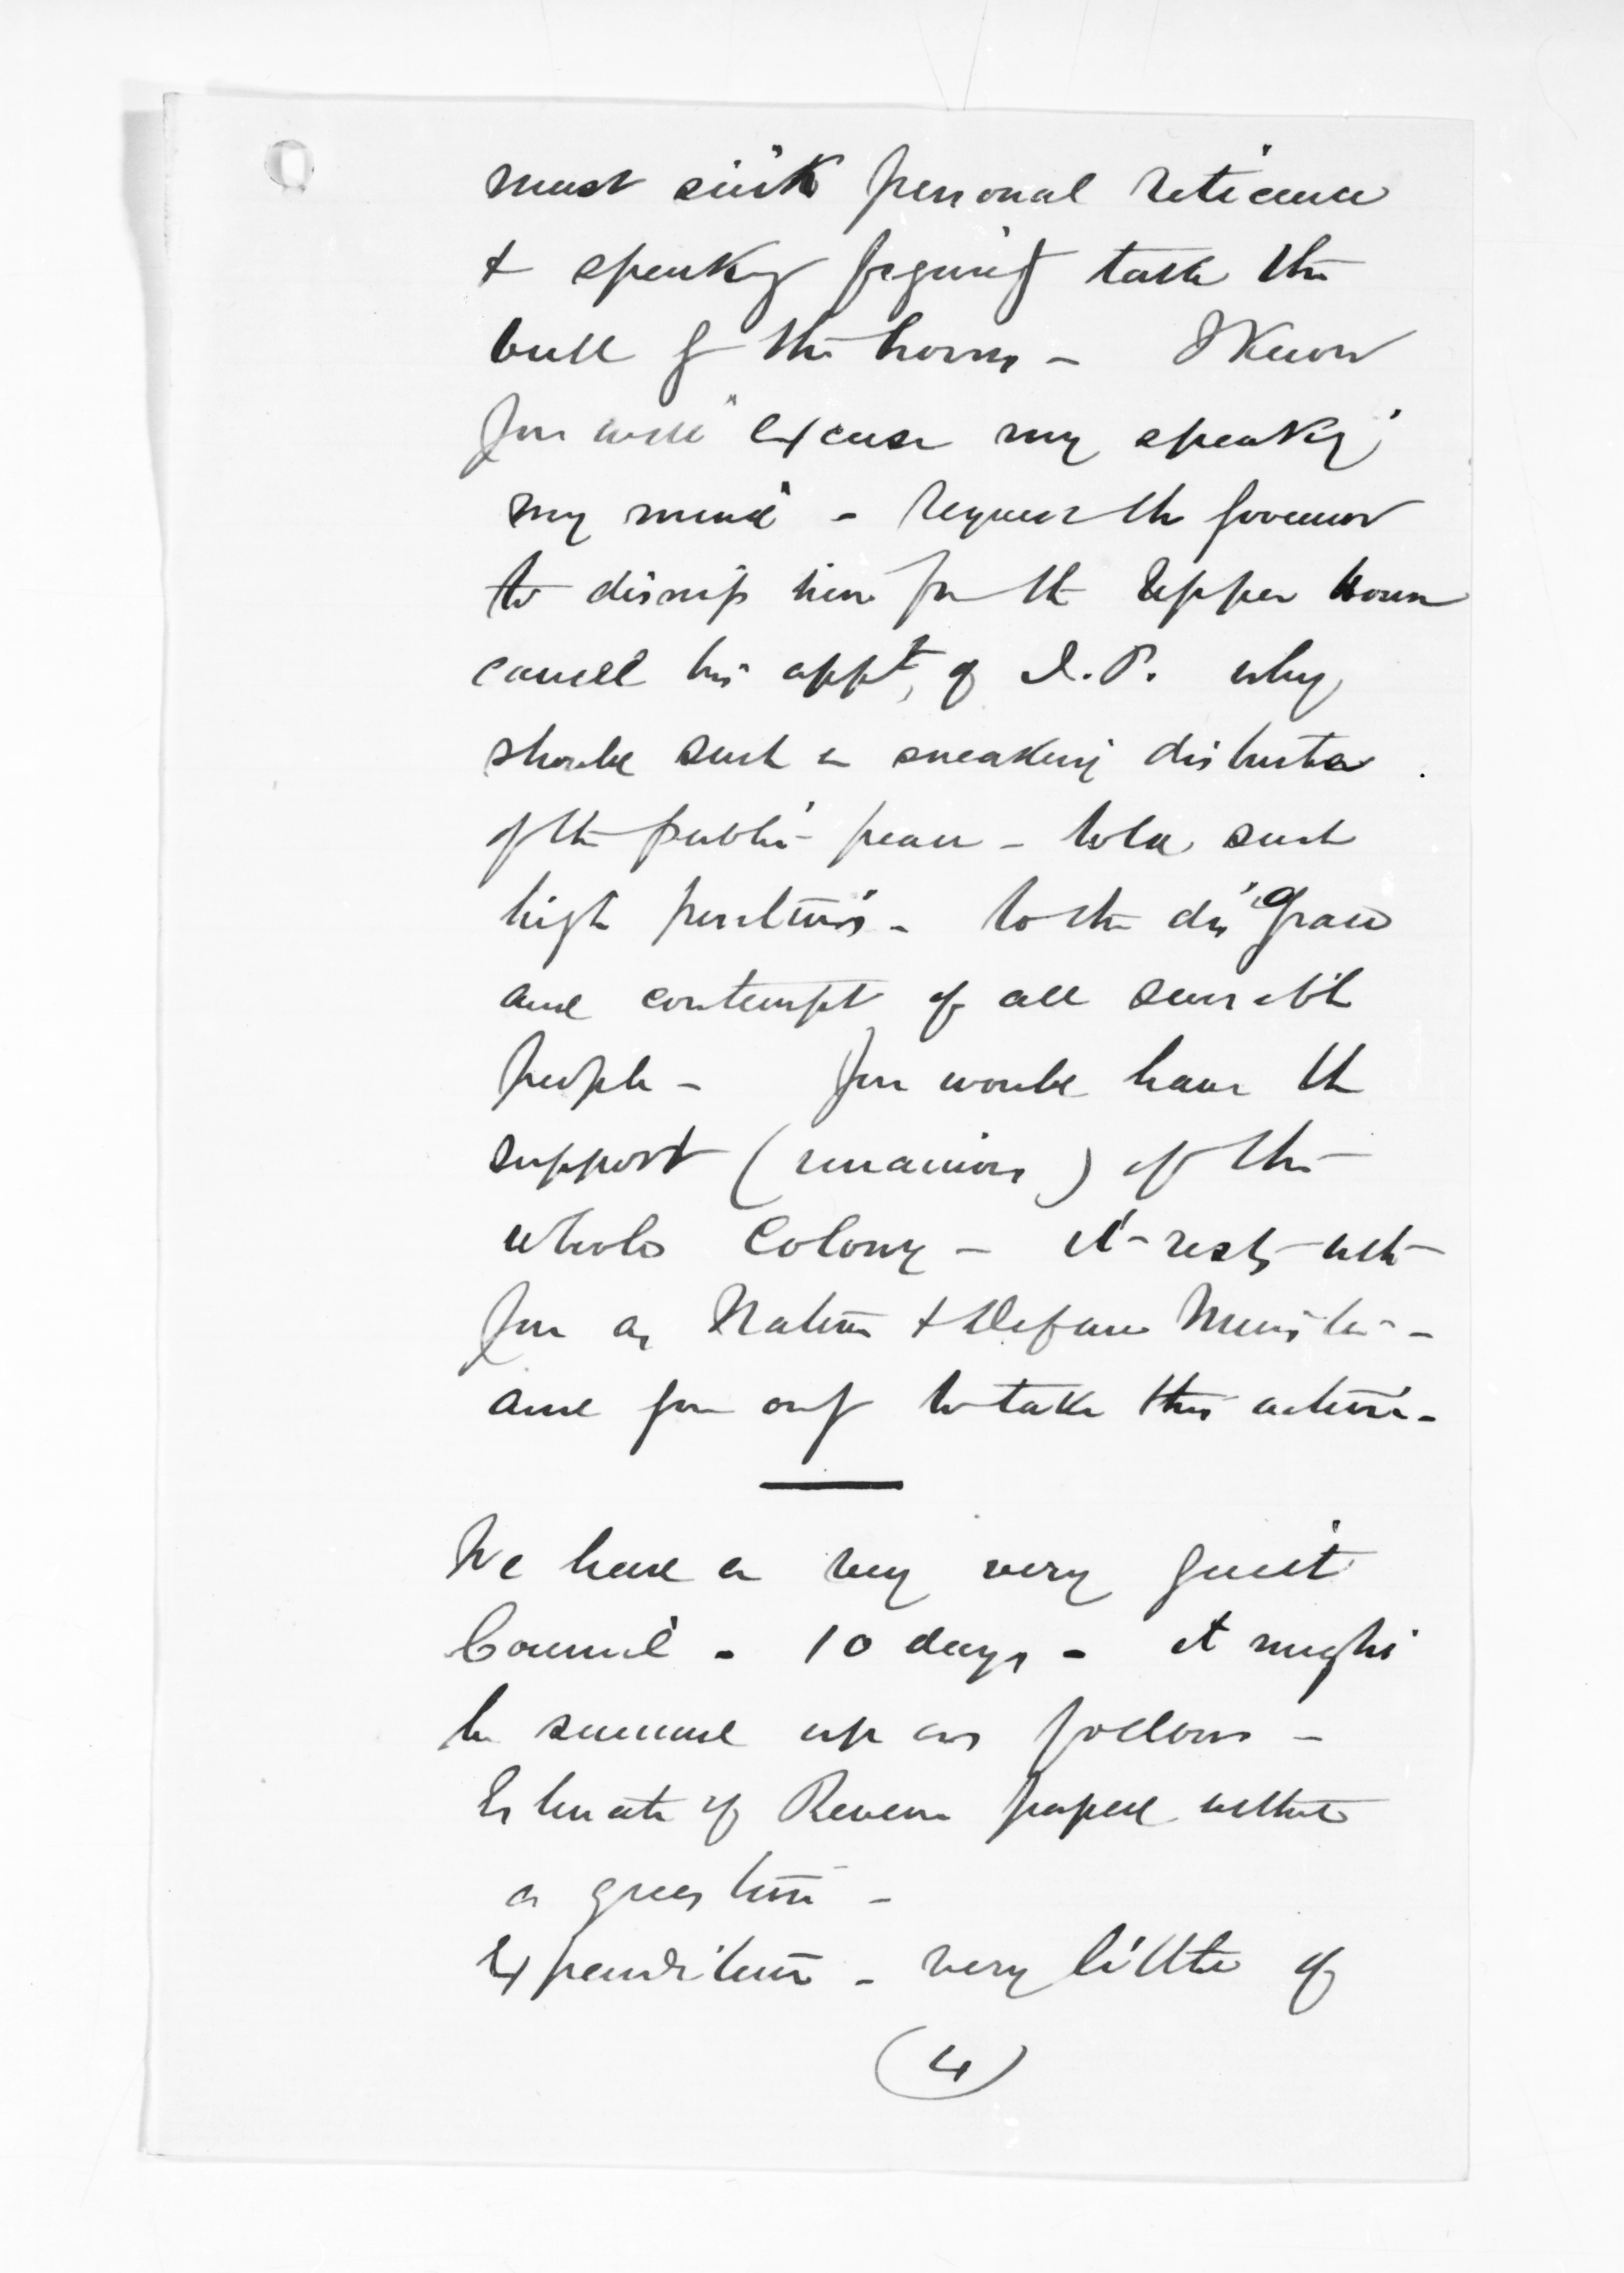 must sink personal reticence
& speaking figurity take the
bull by the horns - I know
you will excuse my speaking
my mind - request the Governor
to dismiss him from the Upper House
cancel his appt, of J.P. why,
should such a sneaking disturber
of the public peace - hold such
high positions - to the disgrace
and contempt of all sensible
people - you would have the
support (unanimous) of the
whole Colony - it rests with
you as Native & Defence Minister -
and you only to take this action -
We had a very very quiet
Council - 10 days - it might
be summed up as follows -
Estimate of Revenue passed without
a question -
Expenditure - very little of
(4)